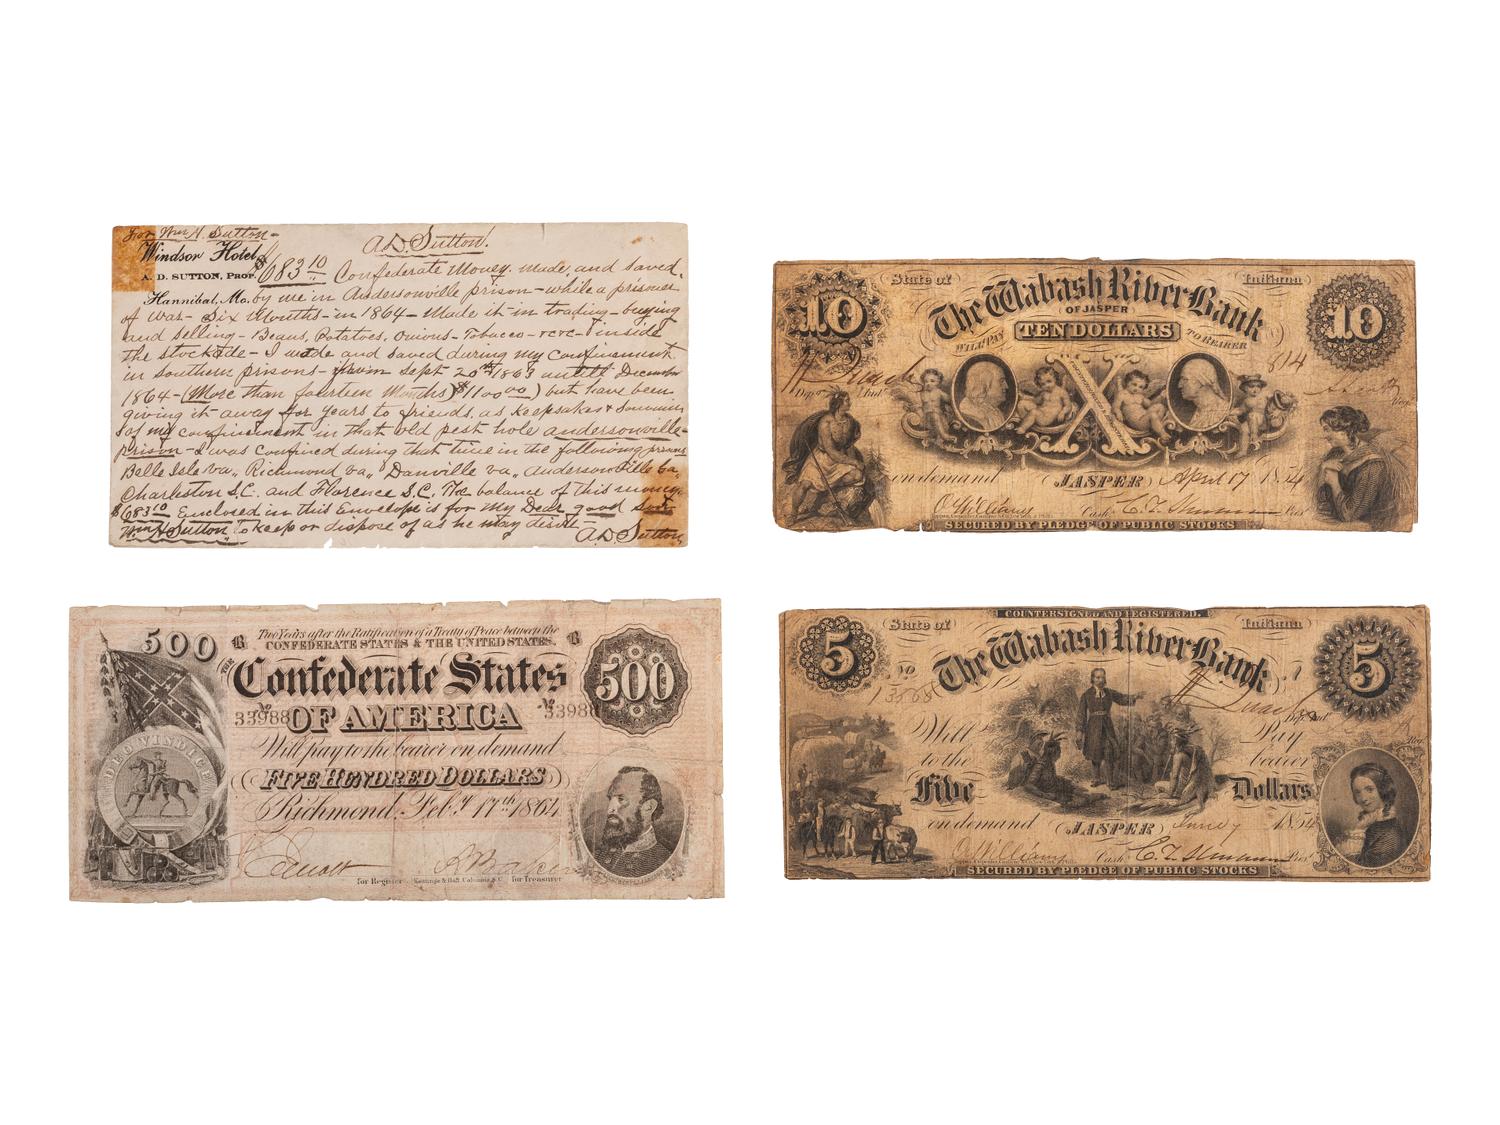 For Wm H. Sutton-
A. D. Sutton!
Windsor Hotel,
A. D. SUTTON, Prop.
Hannibal, Mo.
$683 10 Confederate Money. made, and saved,
by me in Andersonville prison - while a prisoner
of war - Six Months - in 1864 - Made it - in trading - buying
and selling - Beans, Potatoes, onions - Tobacco - &c &c - inside
the stockade - I made and saved during my confinement
in southern prisons - from Sept 20th 1863 untill December
1864 - (More than fourteen Months) $1100 00) but have been
giving it away for years to friends, as keepsakes & Souvenirs
of my confinement in that old pest hole andersonville
prison - I was confined during that time in the following prisons
Belle Isle Va, Richmond Va, Danville Va, Andersonville Ga,
Charleston S.C. and Florence S.C. The balance of this money
$683 10 Enclosed in this Envelope is for My Dear good Son
Wm H Sutton, To keep or dispose of as he may desire -
A. D. Sutton
10
State of
Indiana
10
The Wabash River Bank
OF JASPER
WILL PAY
TEN DOLLARS
TO BEARER
814
X
on demand
JASPER
April 17 1854
O Williams Cash.
Pres
SECURED BY PLEDGE OF PUBLIC STOCKS
500
B
Two Years after the Ratification of a Treaty of Peace between the
B
CONFEDERATE STATES & THE UNITED STATES.
THE
Confederate States
500
No 33988
OF AMERICA
No 33988
Will pay to the bearer on demand
DEO VINDICE
FIVE HUNDRED DOLLARS
Richmond, Feby 17th 1864
for Register
Keatinge & Ball, Columbia, S.C.
for Treasurer
COUNTERSIGNED AND REGISTERED.
5
State of
Indiana
5
The Wabash River Bank
No
A
Will
Pay
to the
bearer
Five
Dollars
on demand
JASPER
June 7 1854
O Williams Cash
Pres
SECURED BY PLEDGE OF PUBLIC STOCKS